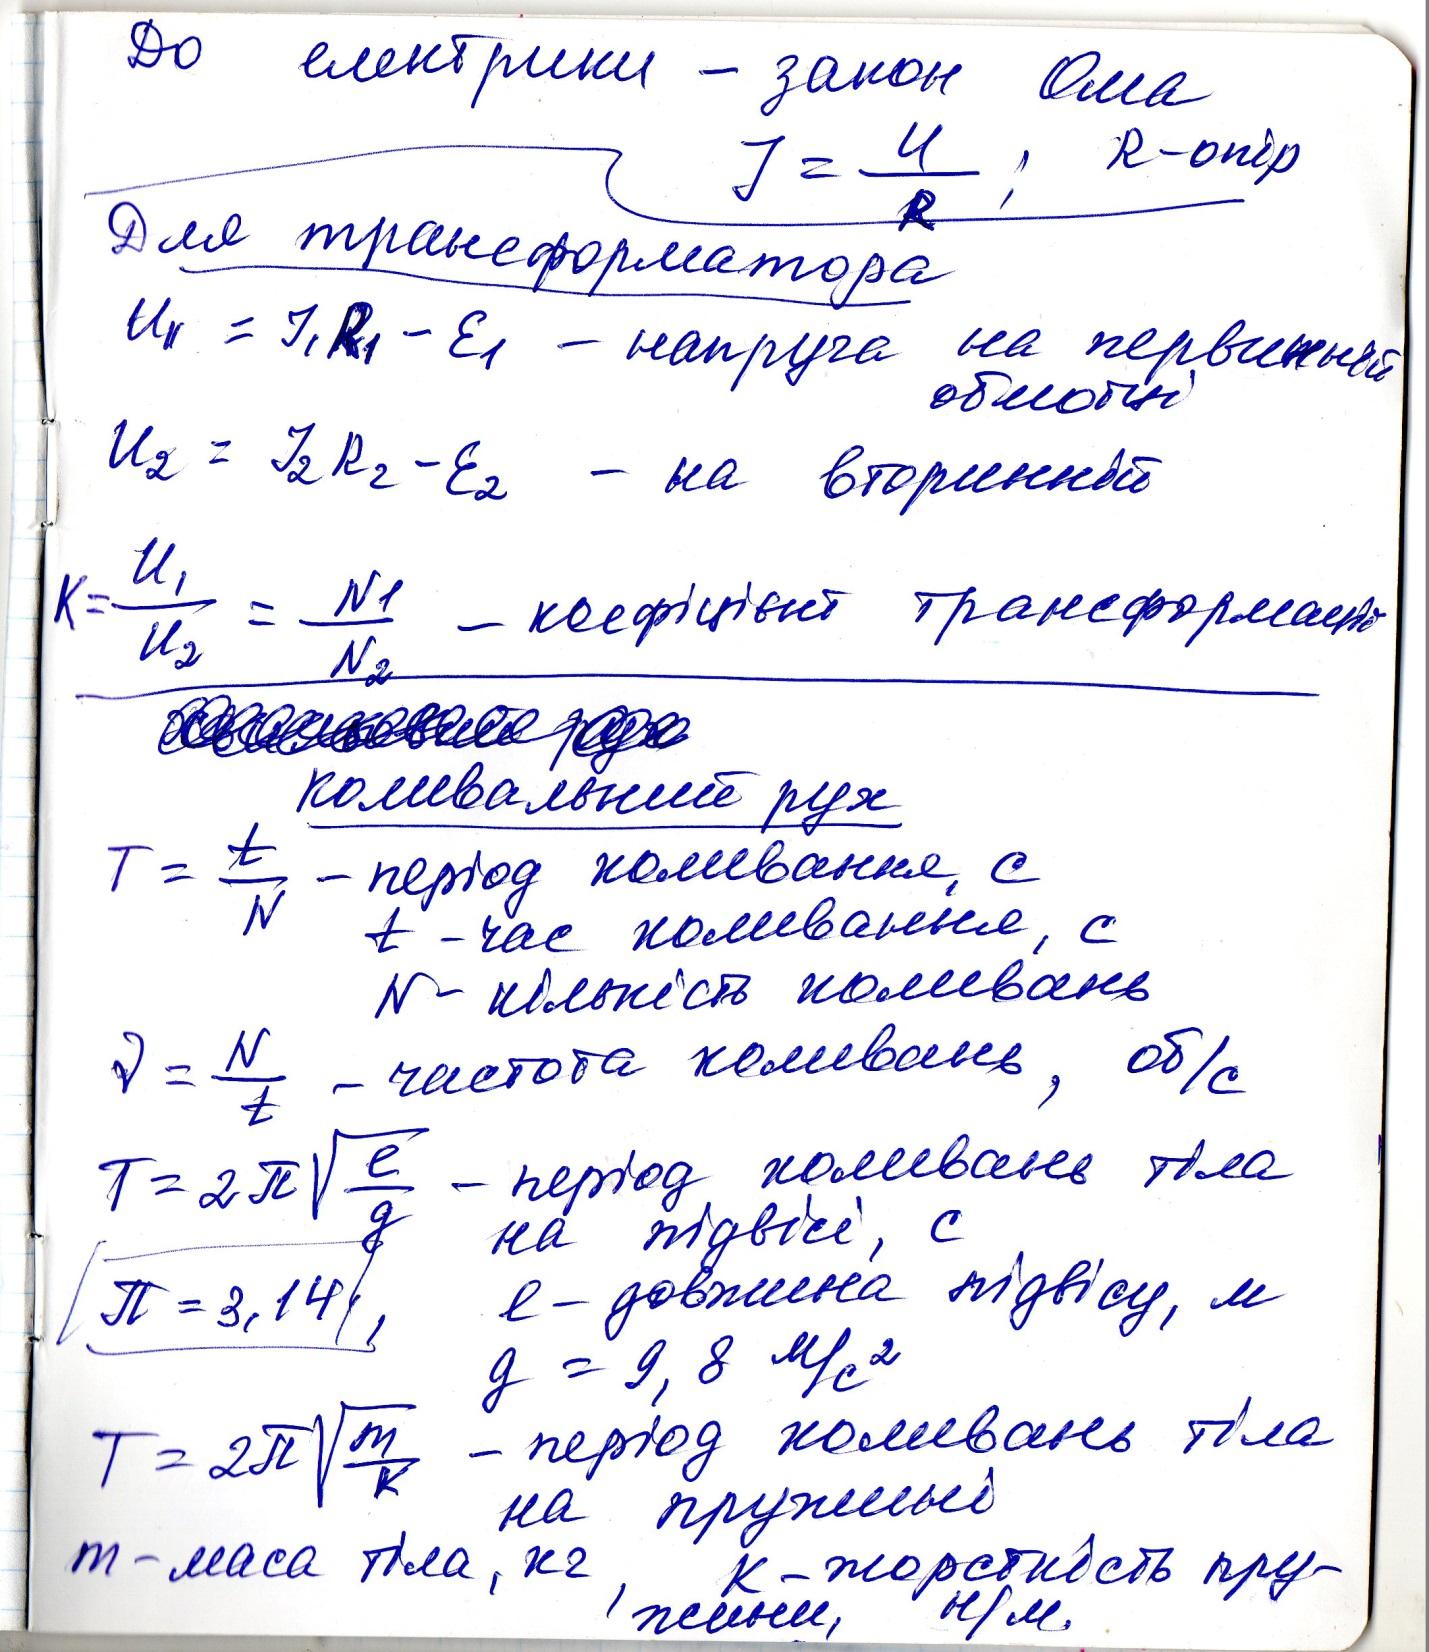 До електрики – закон Ома
I = U/R ; R – опір
Для трансформатора
U1 = I1R1 – ε1 – напруга на первинній
обмотці
U2 = I2R2 – ε2 – на вторинній
K = U1/U2 = N1/N2 – коефіцієнт трансформації
коливальний рух
T = t/N – період коливання, с
t – час коливання, с
N – кількість коливань
ν = N/t – частота коливань, об/с
T = 2π√(l/g) – період коливань тіла
на підвісі, с
π = 3,14, l – довжина підвісу, м
g = 9,8 м/с²
T = 2π√(m/k) – період коливань тіла
на пружині
m – маса тіла, кг, k – жорсткість пру-
жини, н/м.